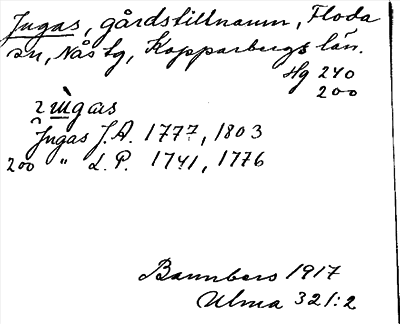 Jugas, gårdstillnamn, Floda
sn, Nås tg, Kopparbergs län.
Hg 240
200
Jugas J.A. 1777, 1803
200 " L.P. 1741, 1776
Bannbers 1917
Ulma 321:2